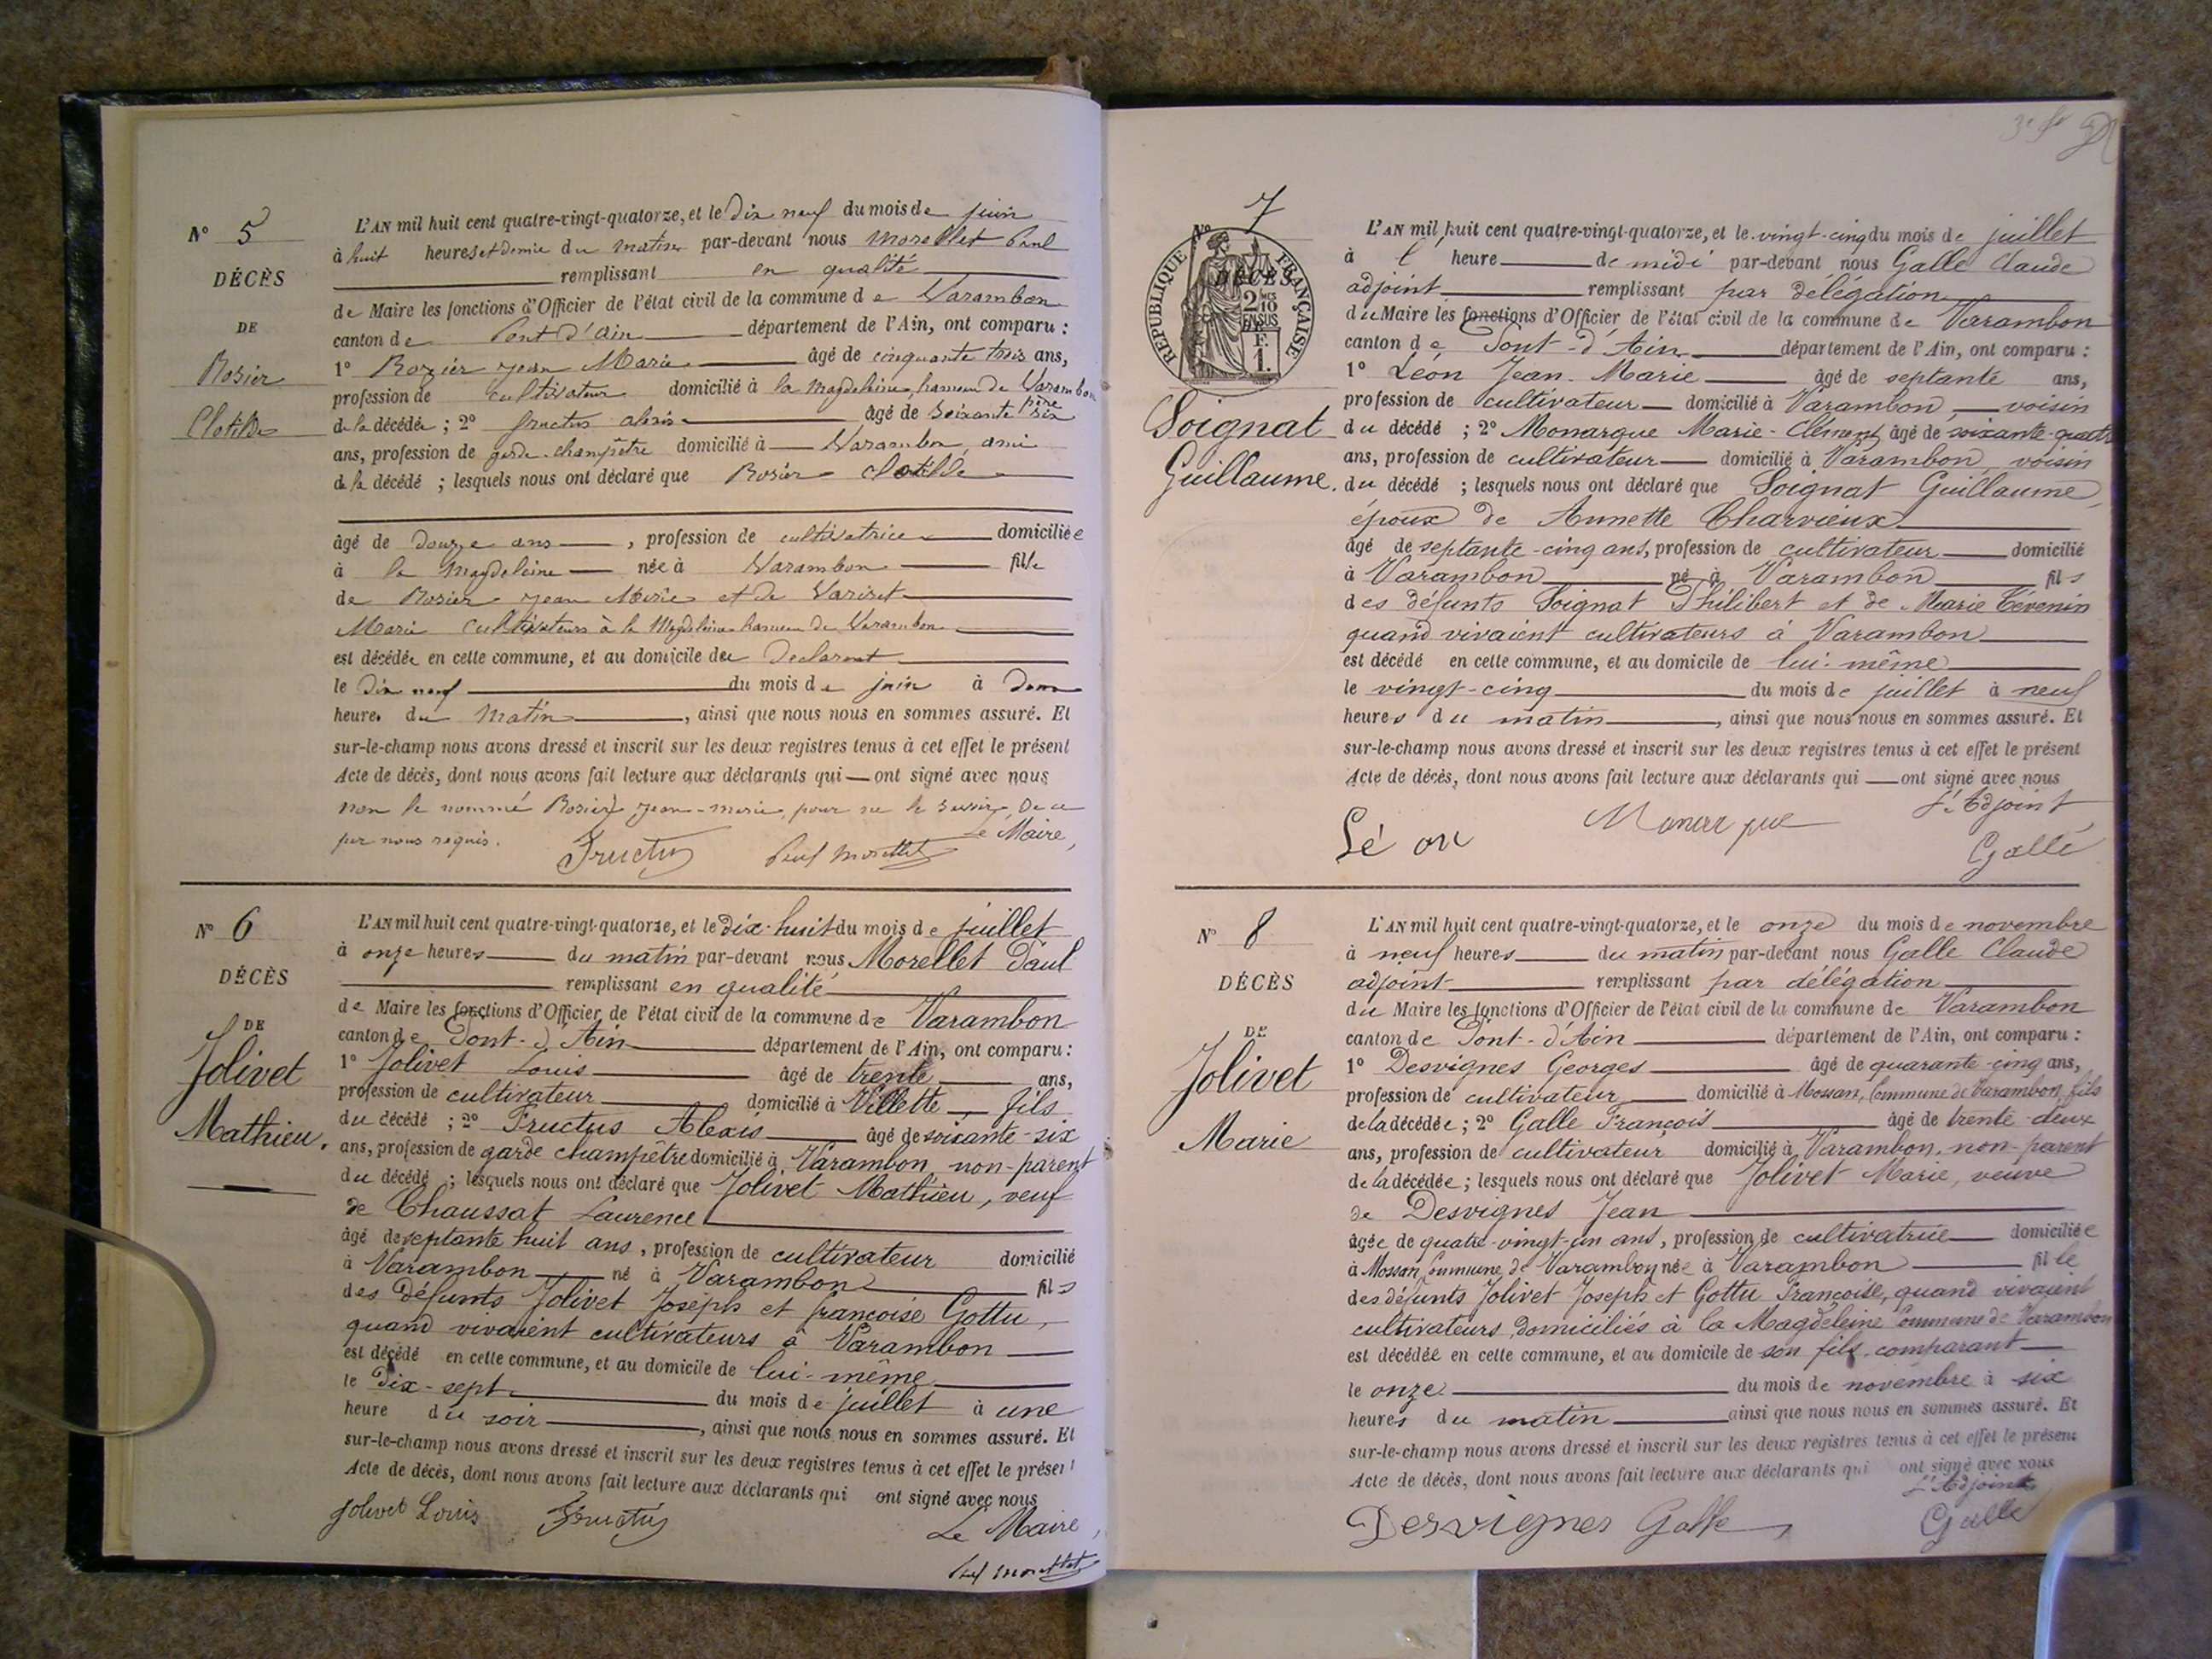 N° 5
DÉCÈS
DE
Rosier
Clotilde
L'AN mil huit cent quatre-vingt-quatorze, et le Dix neuf du mois de juin
à huit heures et demie du matin par-devant nous Morellet Paul
remplissant en qualité
de Maire les fonctions d'Officier de l'état civil de la commune de Varambon
canton de Pont d'ain département de l'Ain, ont comparu :
1° Rozier jean Marie âgé de cinquante trois ans,
profession de cultivateur domicilié à la Magdeleine, hameau de Varambon père
de la décédée ; 2° fructus alexis âgé de soixante six
ans, profession de garde-champêtre domicilié à Varambon, ami
de la décédé ; lesquels nous ont déclaré que Rosier Clotilde
âgé de douze ans, profession de cultivatrice domiciliée
à la Magdeleine née à Varambon fille
de Rosier jean Marie et de
Marie cultivateurs à la Magdeleine hameau de Varambon
est décédée en cette commune, et au domicile du Declarant
le Dix neuf du mois de juin à
heures du matin, ainsi que nous nous en sommes assuré. Et
sur-le-champ nous avons dressé et inscrit sur les deux registres tenus à cet effet le présent
Acte de décès, dont nous avons fait lecture aux déclarants qui ont signé avec nous
non le nommé Rosier jean-marie, pour ne le savoir, De ce
par nous requis. Le Maire,
Fructus Paul Morellet
N° 6
DÉCÈS
DE
Jolivet
Mathieu.
L'AN mil huit cent quatre-vingt-quatorze, et le dix-huit du mois de juillet
à onze heures du matin par-devant nous Morellet Paul
remplissant en qualité
de Maire les fonctions d'Officier de l'état civil de la commune de Varambon
canton de Pont-d'Ain département de l'Ain, ont comparu :
1° Jolivet Louis âgé de trente ans,
profession de cultivateur domicilié à Villette fils
du décédé ; 2° Fructus Alexis âgé de soixante-six
ans, profession de garde champêtre domicilié à Varambon, non-parent
du décédé ; lesquels nous ont déclaré que Jolivet Mathieu, veuf
de Chaussat Laurence
âgé de septante huit ans, profession de cultivateur domicilié
à Varambon né à Varambon fils
des défunts Jolivet Joseph et françoise Gottu,
quand vivaient cultivateurs à Varambon
est décédé en cette commune, et au domicile de lui-même
le dix-sept du mois de juillet à une
heure du soir, ainsi que nous nous en sommes assuré. Et
sur-le-champ nous avons dressé et inscrit sur les deux registres tenus à cet effet le présent
Acte de décès, dont nous avons fait lecture aux déclarants qui ont signé avec nous
Jolivet Louis Fructus Le Maire,
Paul Morellet
N° 7
RÉPUBLIQUE FRANÇAISE
DÉCÈS
2/10
EN SUS
F.
1.
Soignat
Guillaume.
L'AN mil huit cent quatre-vingt-quatorze, et le vingt-cinq du mois de juillet
à l' heure de midi par-devant nous Galle Claude
adjoint remplissant par délégation
du Maire les fonctions d'Officier de l'état civil de la commune de Varambon
canton de Pont-d'Ain département de l'Ain, ont comparu :
1° Léon Jean-Marie âgé de septante ans,
profession de cultivateur domicilié à Varambon, voisin
du décédé ; 2° Monarque Marie-Clément, âgé de soixante-quatre
ans, profession de cultivateur domicilié à Varambon, voisin
du décédé ; lesquels nous ont déclaré que Soignat Guillaume,
époux de Annette Charvieux
âgé de septante-cinq ans, profession de cultivateur domicilié
à Varambon né à Varambon fils
des défunts Soignat Philibert et de Marie Tévenin
quand vivaient cultivateurs à Varambon
est décédé en cette commune, et au domicile de lui-même
le vingt-cinq du mois de juillet à neuf
heures du matin, ainsi que nous nous en sommes assuré. Et
sur-le-champ nous avons dressé et inscrit sur les deux registres tenus à cet effet le présent
Acte de décès, dont nous avons fait lecture aux déclarants qui ont signé avec nous
L'Adjoint
Léon Monarque Galle
N° 8
DÉCÈS
DE
Jolivet
Marie
L'AN mil huit cent quatre-vingt-quatorze, et le onze du mois de novembre
à neuf heures du matin par-devant nous Galle Claude
adjoint remplissant par délégation
du Maire les fonctions d'Officier de l'état civil de la commune de Varambon
canton de Pont-d'Ain département de l'Ain, ont comparu :
1° Desvignes Georges âgé de quarante-cinq ans,
profession de cultivateur domicilié à Mossan, Commune de Varambon, fils
de la décédée ; 2° Galle François âgé de trente-deux
ans, profession de cultivateur domicilié à Varambon, non-parent
de la décédée ; lesquels nous ont déclaré que Jolivet Marie, veuve
de Desvignes Jean
âgée de quatre-vingt-un ans, profession de cultivatrice domiciliée
à Mossan, Commune de Varambon née à Varambon fille
des défunts Jolivet Joseph et Gottu Françoise, quand vivaient
cultivateurs domiciliés à la Magdeleine Commune de Varambon
est décédée en cette commune, et au domicile de son fils comparant
le onze du mois de novembre à six
heures du matin ainsi que nous nous en sommes assuré. Et
sur-le-champ nous avons dressé et inscrit sur les deux registres tenus à cet effet le présent
Acte de décès, dont nous avons fait lecture aux déclarants qui ont signé avec nous
L'Adjoint
Desvignes Galle Galle